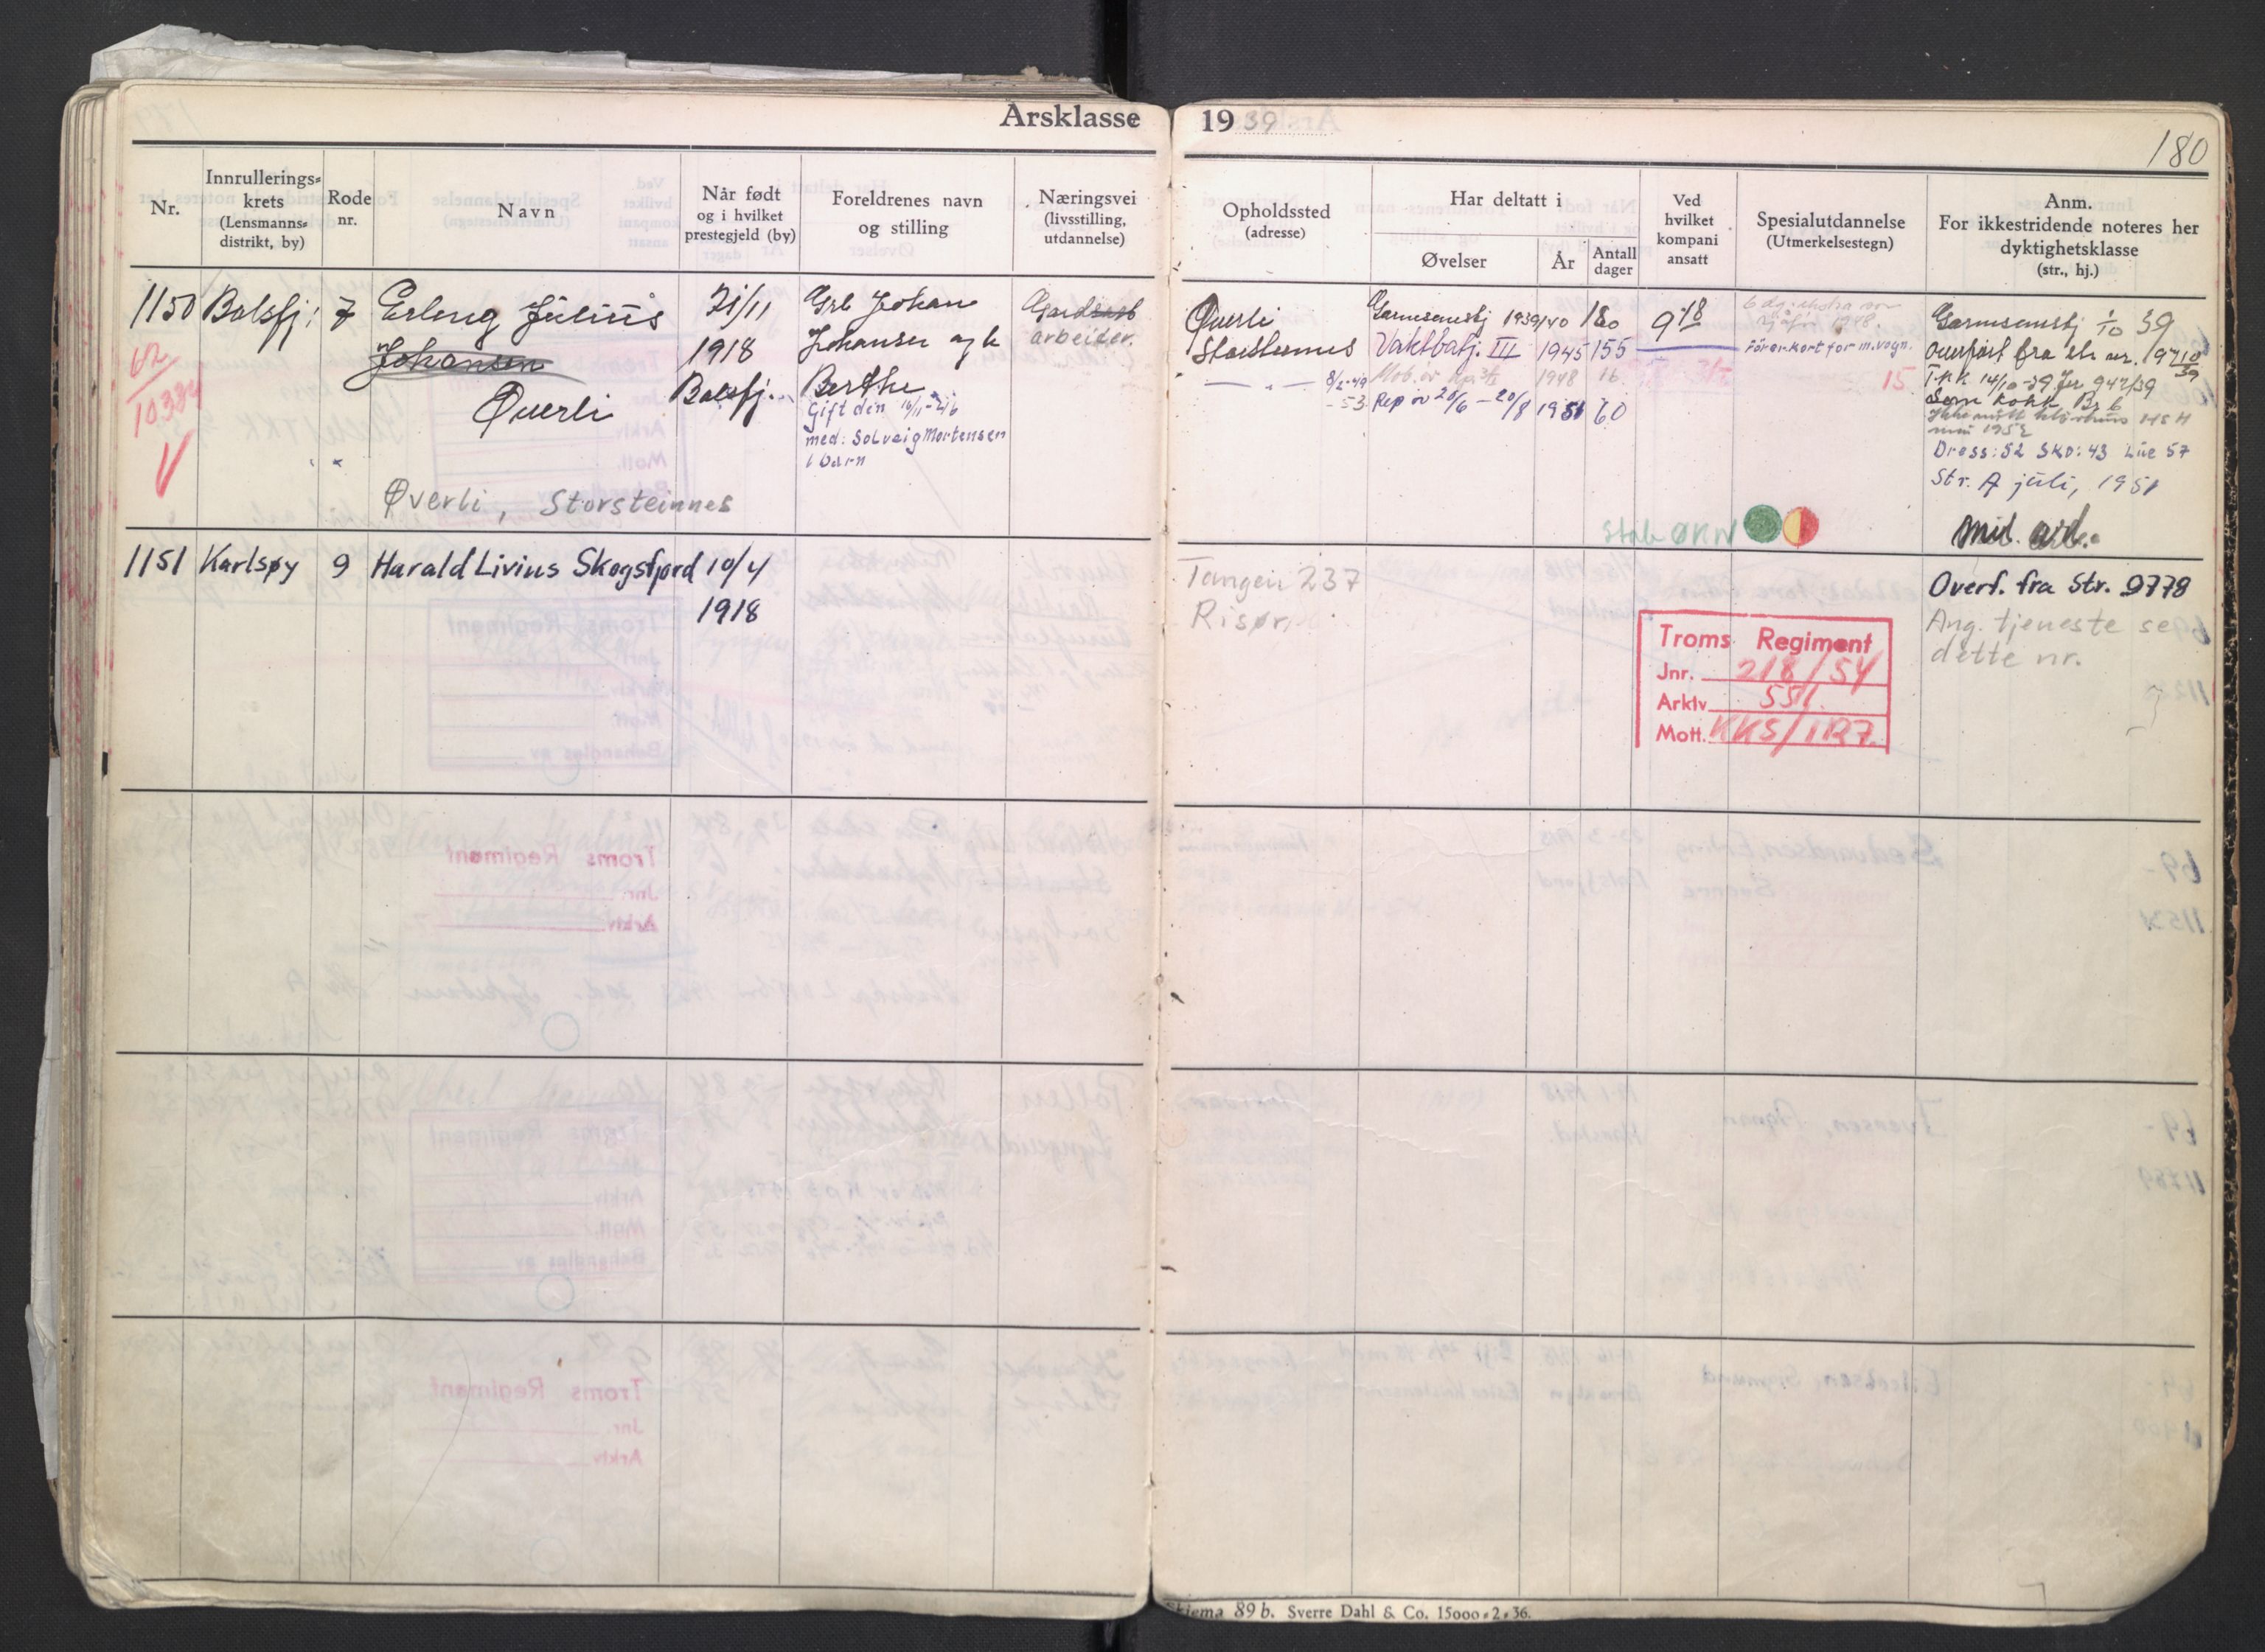 Årsklasse 1939
180
Nr.
Innrullerings-
krets
(Lensmanns-
distrikt, by)
Rode
nr.
Navn
Når født
og i hvilket
prestegjeld (by)
Foreldrenes navn
og stilling
Næringsvei
(livsstilling,
utdannelse)
Opholdssted
(adresse)
Har deltatt i
Øvelser
År
Antall
dager
Ved
hvilket
kompani
ansatt
Spesialutdannelse
(Utmerkelsestegn)
Anm.
For ikkestridende noteres her
dyktighetsklasse
(str., hj.)
1150
62
10384
V
Balsfj:
7
Erling Julius
Johansen
Øverli
Øverli, Storsteinnes
21/11
1918
Balsfj.
Grb Johan
Johansen og h
Berthe
Gift den 10/11-46
med: Solveig Mortensen
1 barn
arbeider.
Øverli
Storsteinnes
— " — 8/2-49
-53
Garnisonstj 1939/40 180
Vaktbatj. III 1945 155
Mob. øv 1948 16
Rep øv 20/6 – 20/8 1951 60
Førerkort for m.vogn.
15
Garnisonstj 1/10 39
Overført fra str nr. 9710/39
T.K.K. 14/10-39 Jnr 947/39
Som kokk Br 6
Dress: 52 Sko: 43 Lue 57
Str. A juli, 1951
Mil. arb.
Stab ØKN
1151
Karlsøy
9
Harald Livius Skogsfjord
10/4
1918
Tangen 237
Risør,
Troms Regiment
Jnr. 218/54
Arkiv 551.
Mott. KKS/IR7.
Overf. fra Str. 9778
Ang. tjeneste se
dette nr.
Skjema 89 b. Sverre Dahl & Co. 15000-2-36.